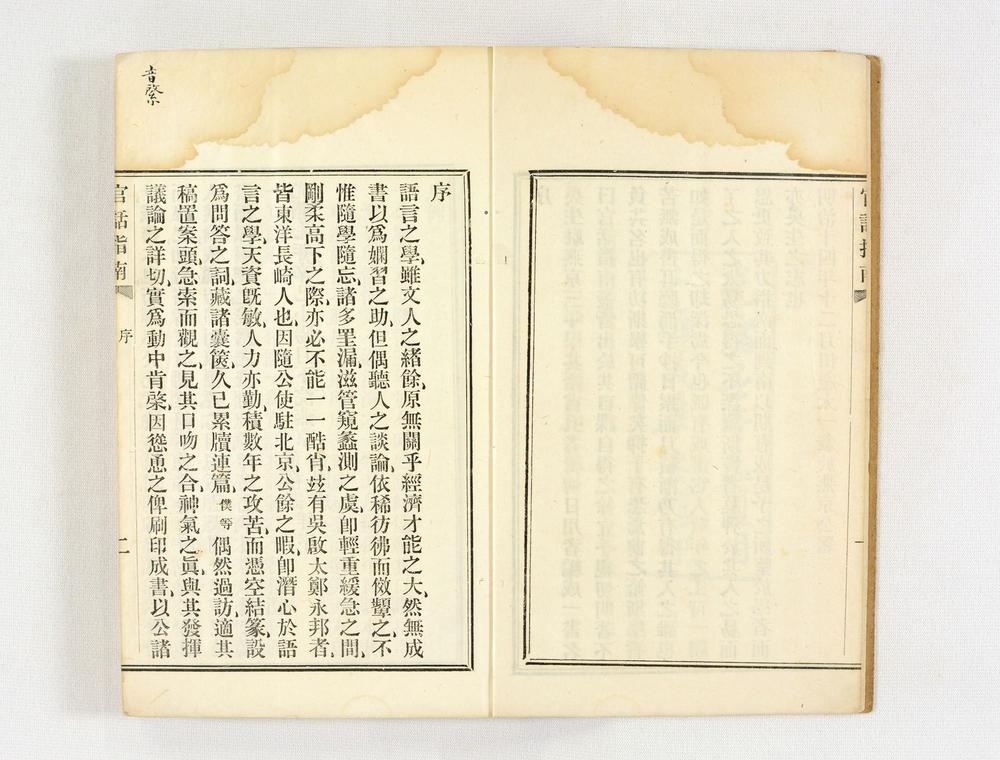 官話指南
一
序
語言之學、雖文人之緒餘、原無關乎經濟才能之大、然無成
書以爲嫻習之助、但偶聽人之談論、依稀彷彿而傚顰之、不
惟隨學隨忘、諸多罣漏、滋管窺蠡測之虞、卽輕重緩急之間、
剛柔高下之際、亦必不能一一酷肖、玆有吳啟太鄭永邦者、
皆東洋長崎人也、因隨公使駐北京、公餘之暇、卽潛心於語
言之學、天資旣敏、人力亦勤、積數年之攻苦、而憑空結篆、設
爲問答之詞、藏諸囊篋、久已累牘連篇、僕等偶然過訪、適其
稿置案頭、急索而觀之、見其口吻之合、神氣之眞、與其發揮
議論之詳切、實爲動中肯棨、因慫恿之俾刷印成書、以公諸
音棨
官話指南 序 二